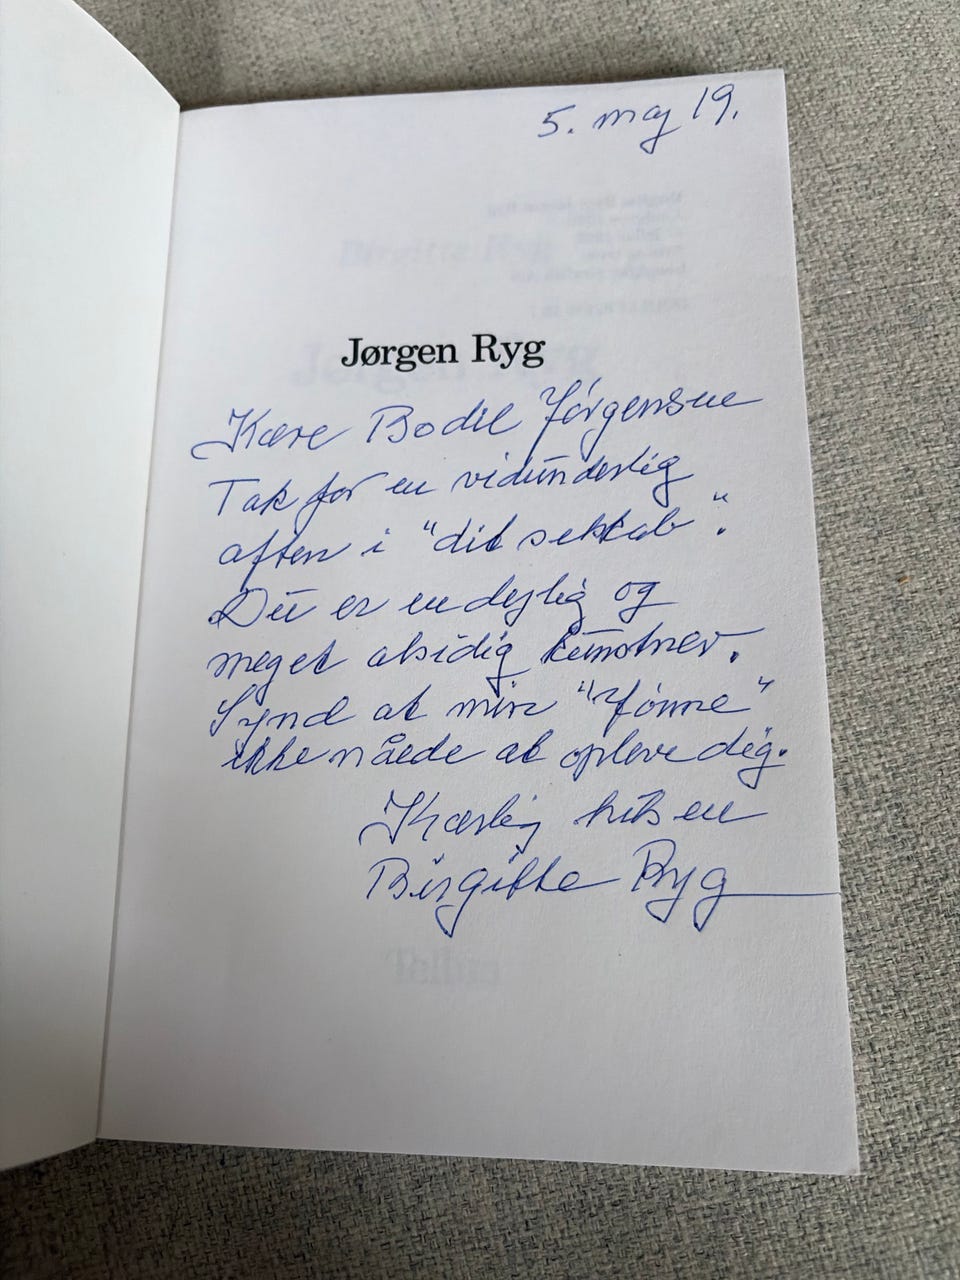 5. maj 19.
Jørgen Ryg
Kære Bodil Jørgensen
Tak for en vidunderlig
aften i "dit selskab".
Du er en dejlig og
meget alsidig kunstner.
Synd at min "Jønne"
ikke nåede at opleve dig.
Kærlig hilsen
Birgitte Ryg